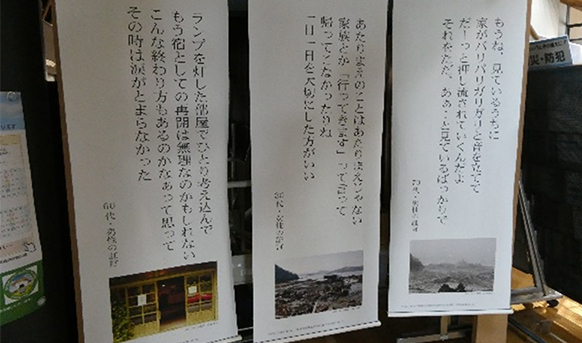 もうね、見ているうちに
家がバリバリガリガリーと音を立って
だーっと押し流されていくんだよ
それをただ、ああーと見ているばっかりで
あたりまえのことはあたりまえじゃない
家族とか「行ってきます」って言って
帰ってこなかったりね
一日一日を大切にした方がいい
ランプを灯した部屋でひとり考え込んで
もう宿としての再開は無理なのかもしれない
こんな終わり方もあるのかなぁって思って
その時は涙がとまらなかった
60代・男性の証言
災・防犯